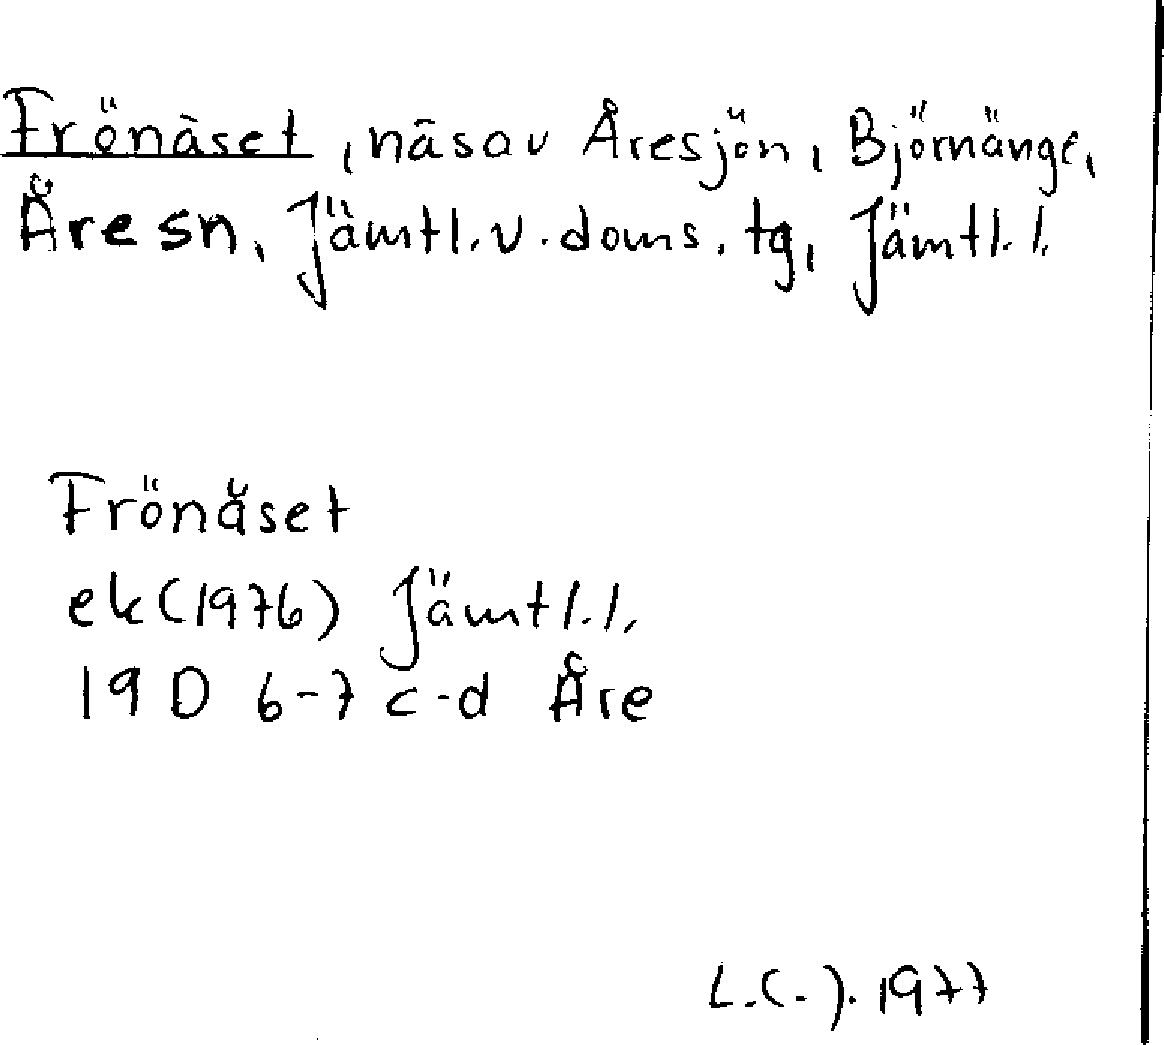 Frönäset, näs av Åresjön, Björnänge,
Åre sn, Jämtl. v. doms. tg, Jämtl. l.
Frönäset
ek (1976) Jämtl. l.
19 D 6-7 c-d Åre
L.C.J. 1977